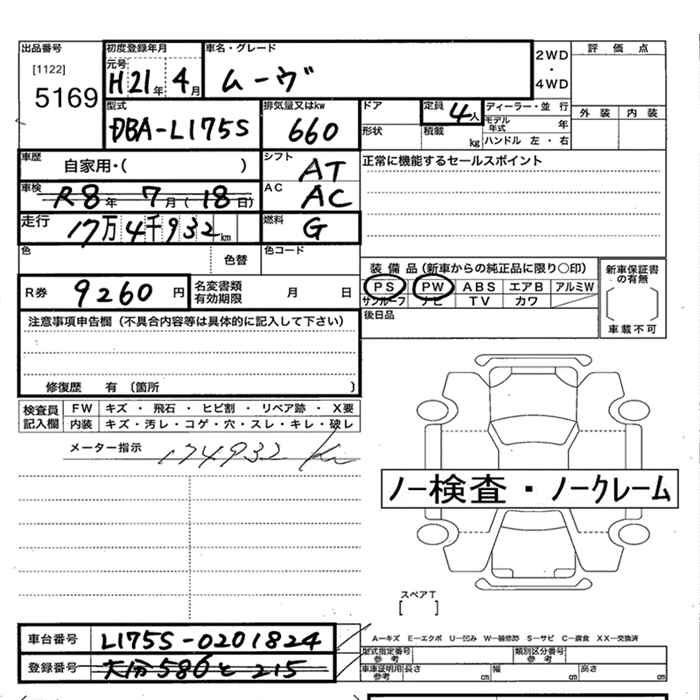 出品番号 初度登録年月 車名・グレード 2WD 評価点
[1122] 元号
5169 H21年 4月 ムーヴ ・ 4WD
型式 排気量又はkw ドア 定員 4人 ディーラー・並行 外装 内装
DBA-L175S 660 形状 積載 kg モデル年式 年
ハンドル 左・右
車歴 自家用・( ) シフト AT 正常に機能するセールスポイント
車検 R8年 7月(18日) AC AC
走行 17万4千932km 燃料 G
色 色替 色コード
装備品(新車からの純正品に限り○印) 新車保証書の有無
R券 9260円 名変書類有効期限 月 日 PS PW ABS エアB アルミW
サンルーフ ナビ TV カワ
注意事項申告欄(不具合内容等は具体的に記入して下さい) 後日品 車載不可
修復歴 有(箇所 )
検査員記入欄 FW キズ・飛石・ヒビ割・リペア跡・X要
内装 キズ・汚レ・コゲ・穴・スレ・キレ・破レ
メーター指示 174932 Km
ノー検査・ノークレーム
スペアT
[ ]
車台番号 L175S-0201824 A−キズ E−エクボ U−凹み W−補修跡 S−サビ C−腐食 XX−交換済
型式指定番号 参考 類別区分番号 参考
登録番号 大分580と215 車庫証明用参考 長さ cm 幅 cm 高さ cm